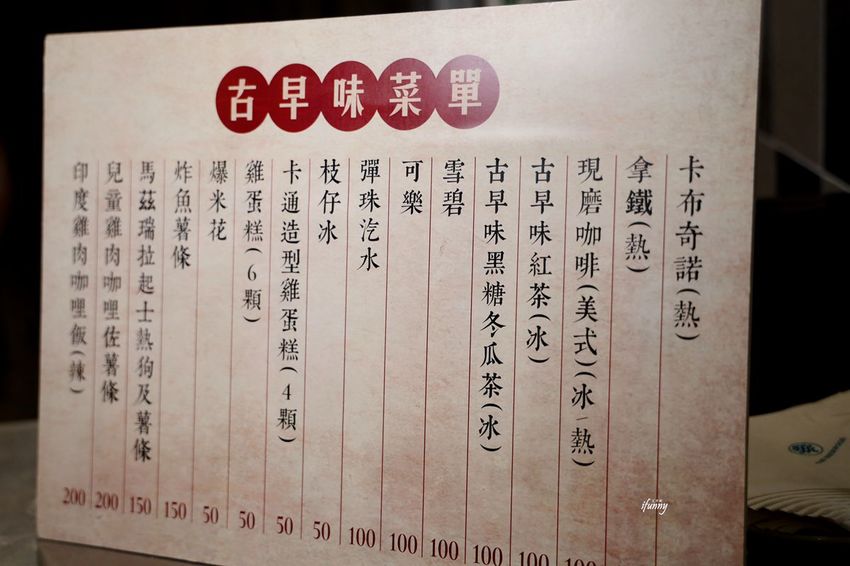 古早味菜單
卡布奇諾(熱)
拿鐵(熱)
現磨咖啡(美式)(冰/熱)
古早味紅茶(冰) 100
古早味黑糖冬瓜茶(冰) 100
雪碧 100
可樂 100
彈珠汽水 100
枝仔冰 50
卡通造型雞蛋糕(4顆) 50
雞蛋糕(6顆) 50
爆米花 50
炸魚薯條 150
馬茲瑞拉起士熱狗及薯條 150
兒童雞肉咖哩佐薯條 200
印度雞肉咖哩飯(辣) 200
ifunny